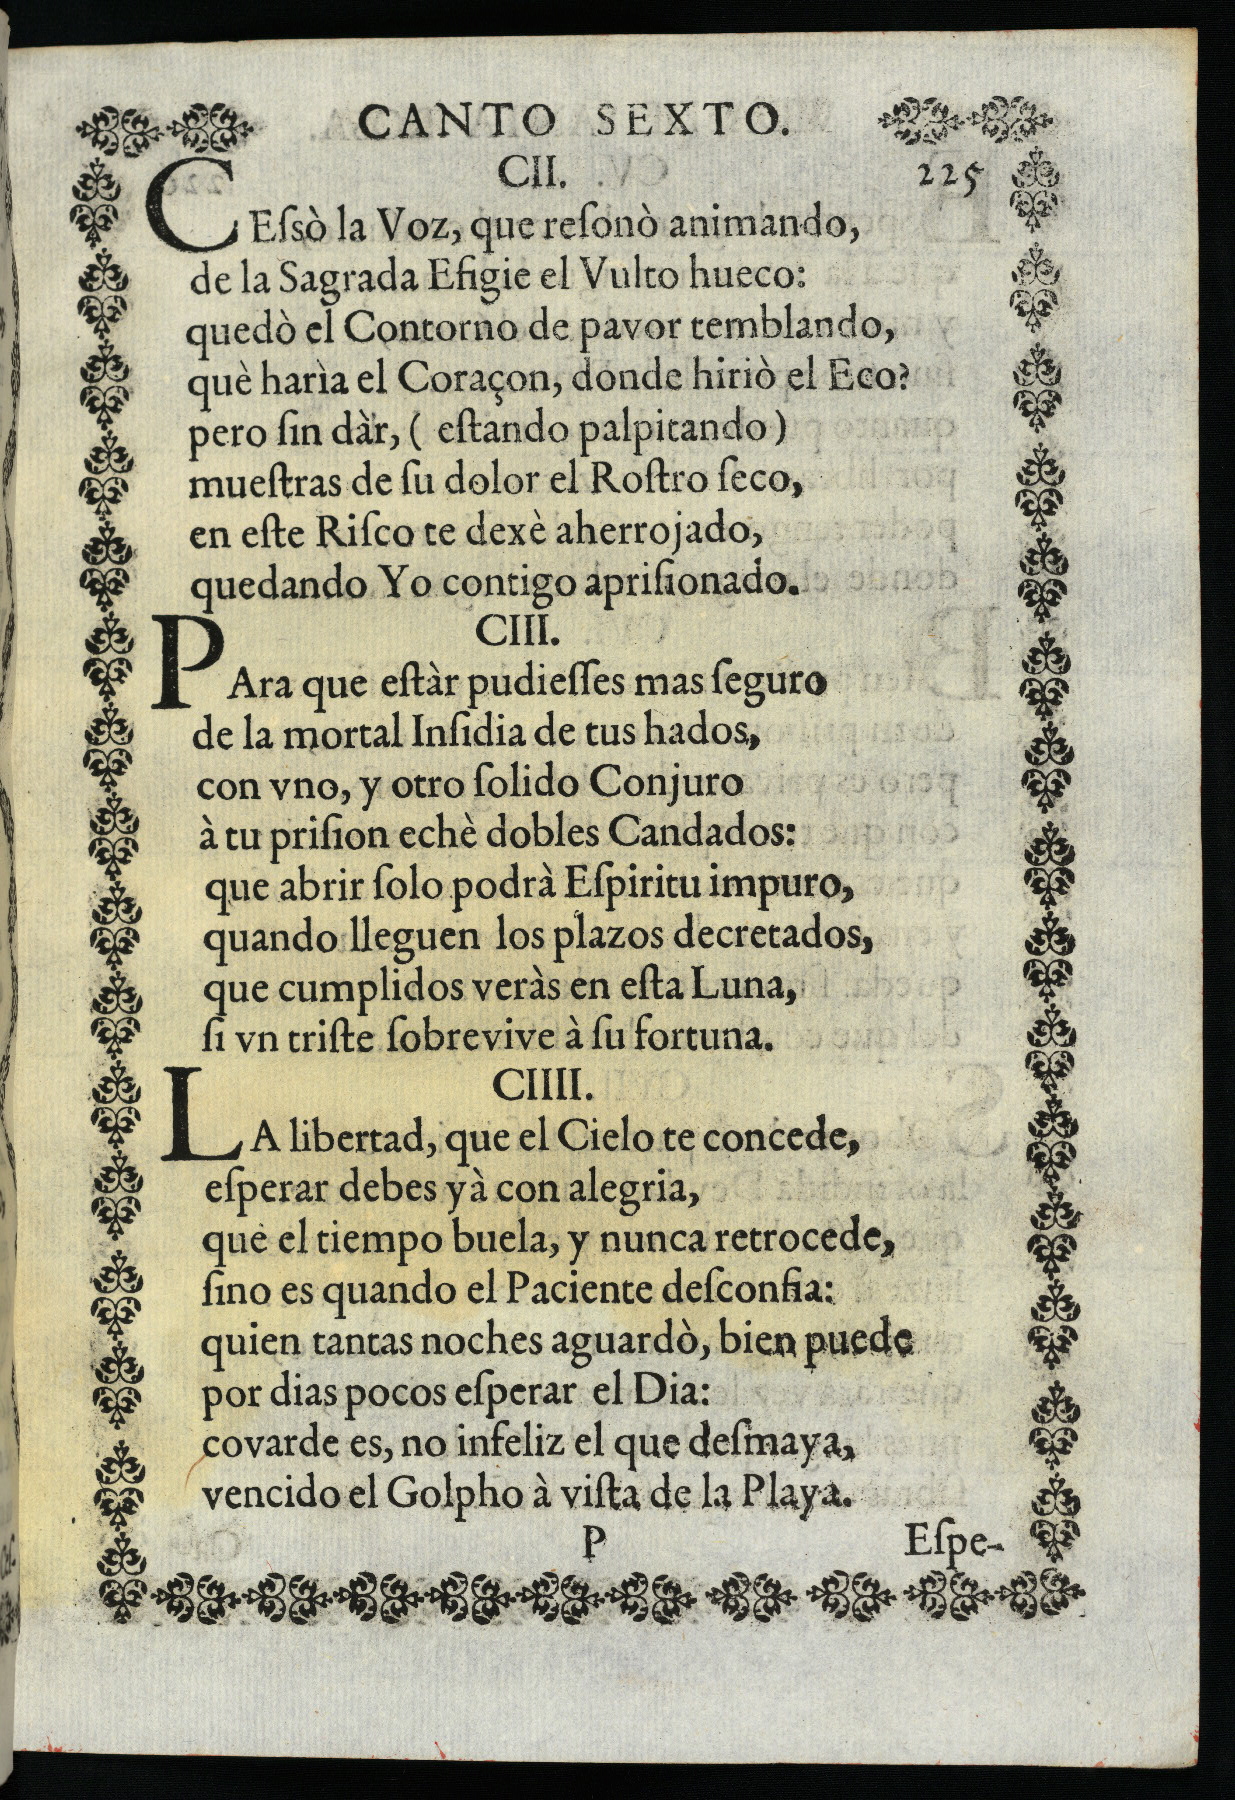 CANTO SEXTO.
CII.
225
CEſsò la Voz, que reſonò animando,
de la Sagrada Efigie el Vulto hueco:
quedò el Contorno de pavor temblando,
què harìa el Coraçon, donde hiriò el Eco?
pero ſin dàr, ( eſtando palpitando )
mueſtras de ſu dolor el Roſtro ſeco,
en eſte Riſco te dexè aherrojado,
quedando Yo contigo apriſionado.
CIII.
PAra que eſtàr pudieſſes mas ſeguro
de la mortal Inſidia de tus hados,
con vno, y otro ſolido Conjuro
à tu priſion echè dobles Candados:
que abrir ſolo podrà Eſpiritu impuro,
quando lleguen los plazos decretados,
que cumplidos veràs en eſta Luna,
ſi vn triſte ſobrevive à ſu fortuna.
CIIII.
LA libertad, que el Cielo te concede,
eſperar debes yà con alegria,
que el tiempo buela, y nunca retrocede,
ſino es quando el Paciente deſconfia:
quien tantas noches aguardò, bien puede
por dias pocos eſperar el Dia:
covarde es, no infeliz el que deſmaya,
vencido el Golpho à viſta de la Playa.
P
Eſpe-